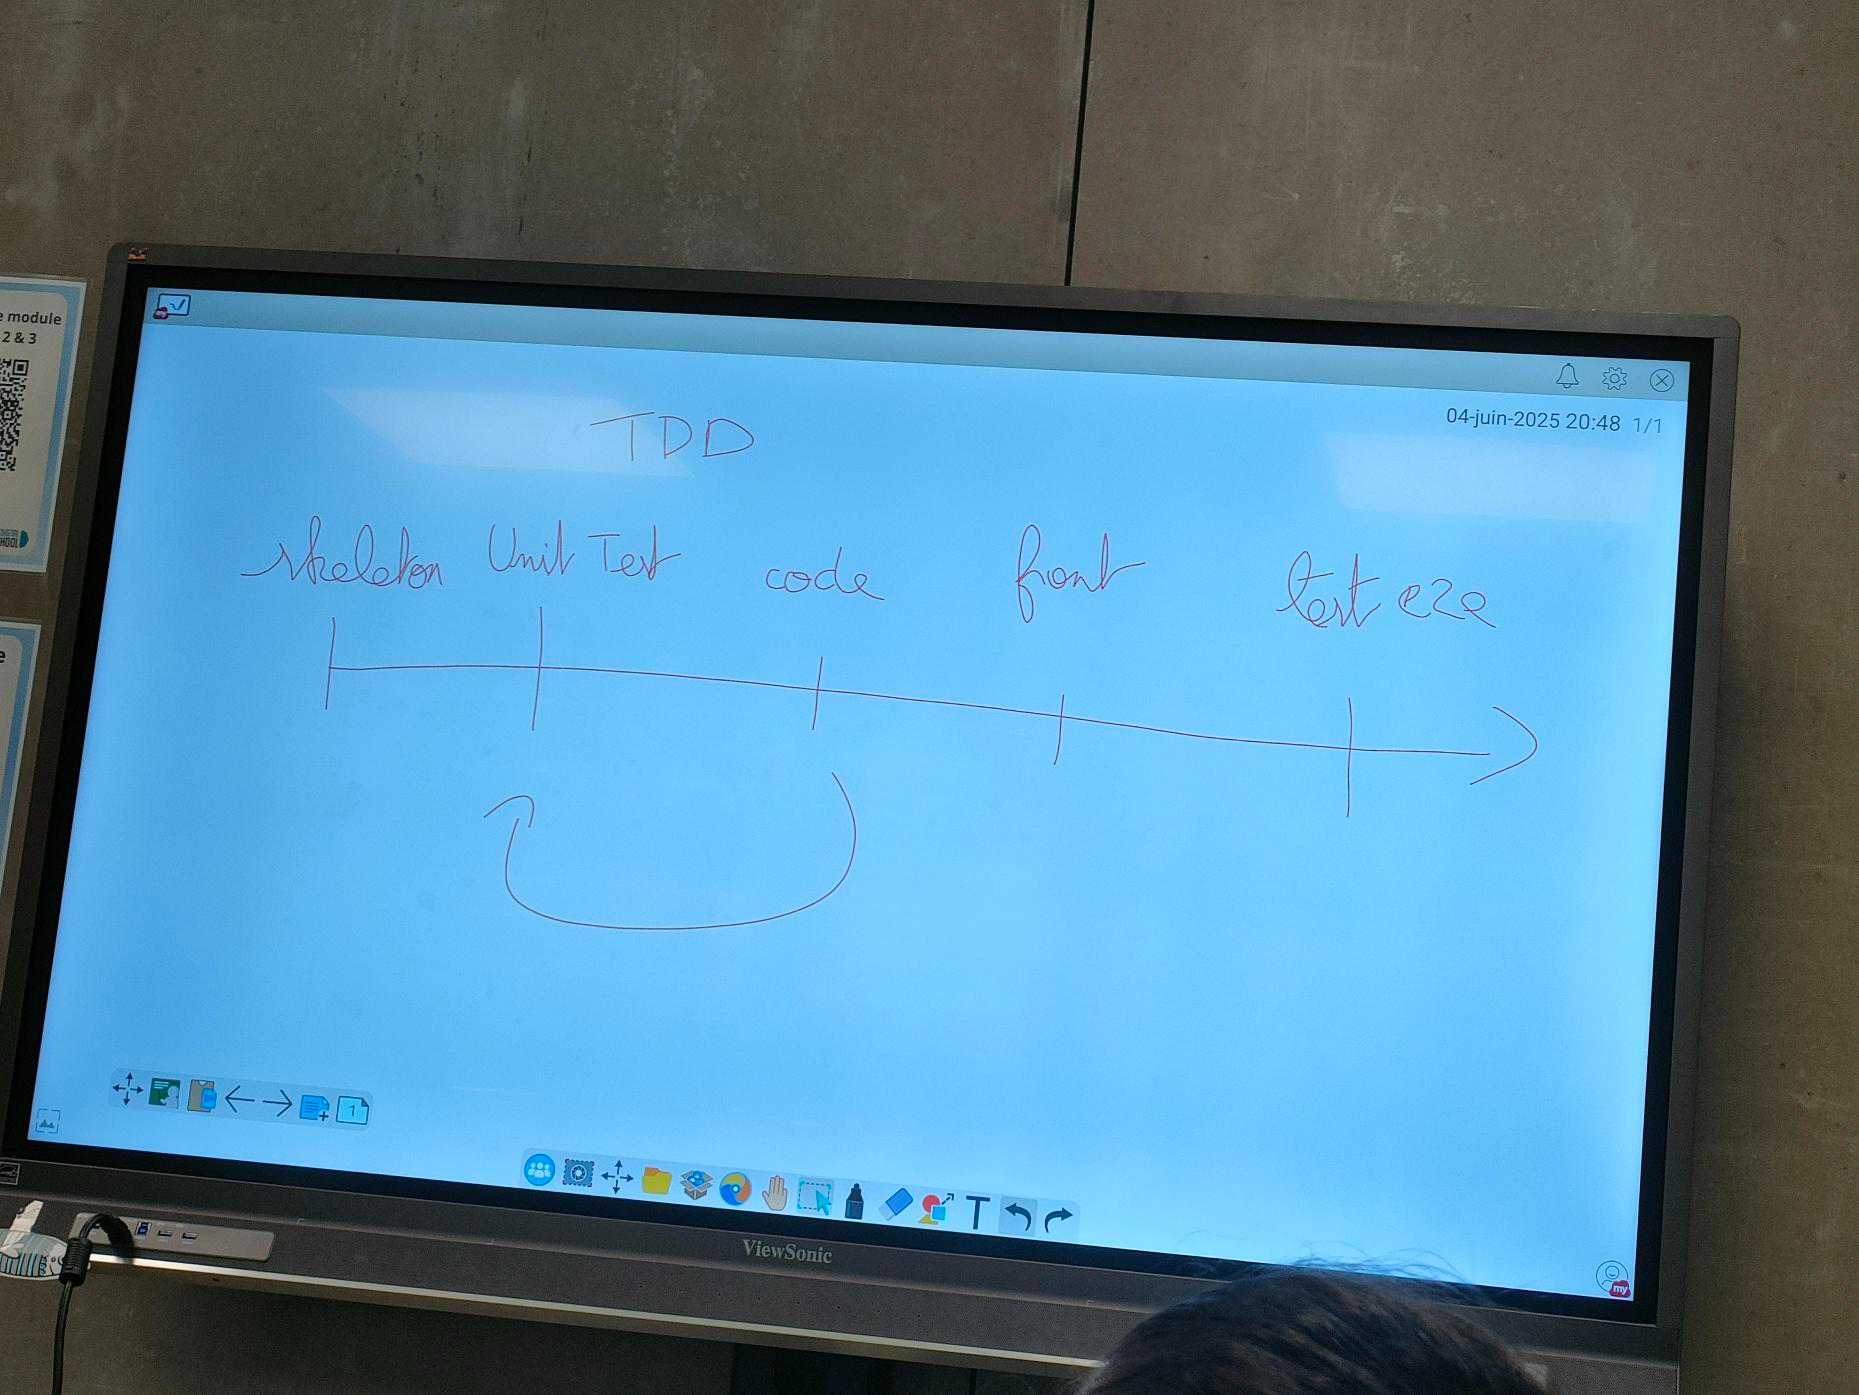 e module
2 & 3
04-juin-2025 20:48 1/1
TDD
skeleton Unit Test code front test e2e
1
T
ViewSonic
my